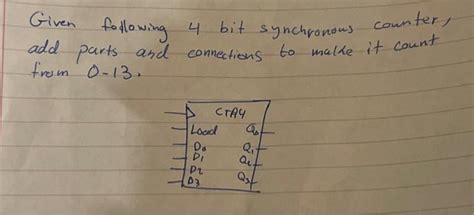 Given following 4 bit synchronous counter,
add parts and connections to make it count
from 0-13.
CTR4
Load Q0
D0 Q1
D1 Q2
D2 Q3
D3